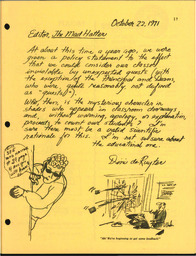 17
October 22, 1971
Editor, The Mad Hatter
At about this time a year ago, we were
given a policy statement to the effect
that we could consider our classes
inviolable by unexpected guests (with
the exception of the Principal and Deans,
who were quite reasonably not defined
as "guests").
Who, then, is the mysterious character in
shades who appears in classroom doorways
and, without warning, apology, or explanation,
proceeds to count our students? I'm
sure there must be a valid scientific
rationale for this. I'm not so sure about
the educational one.
Doni de Ruyter
"We're beginning to get some feedback"